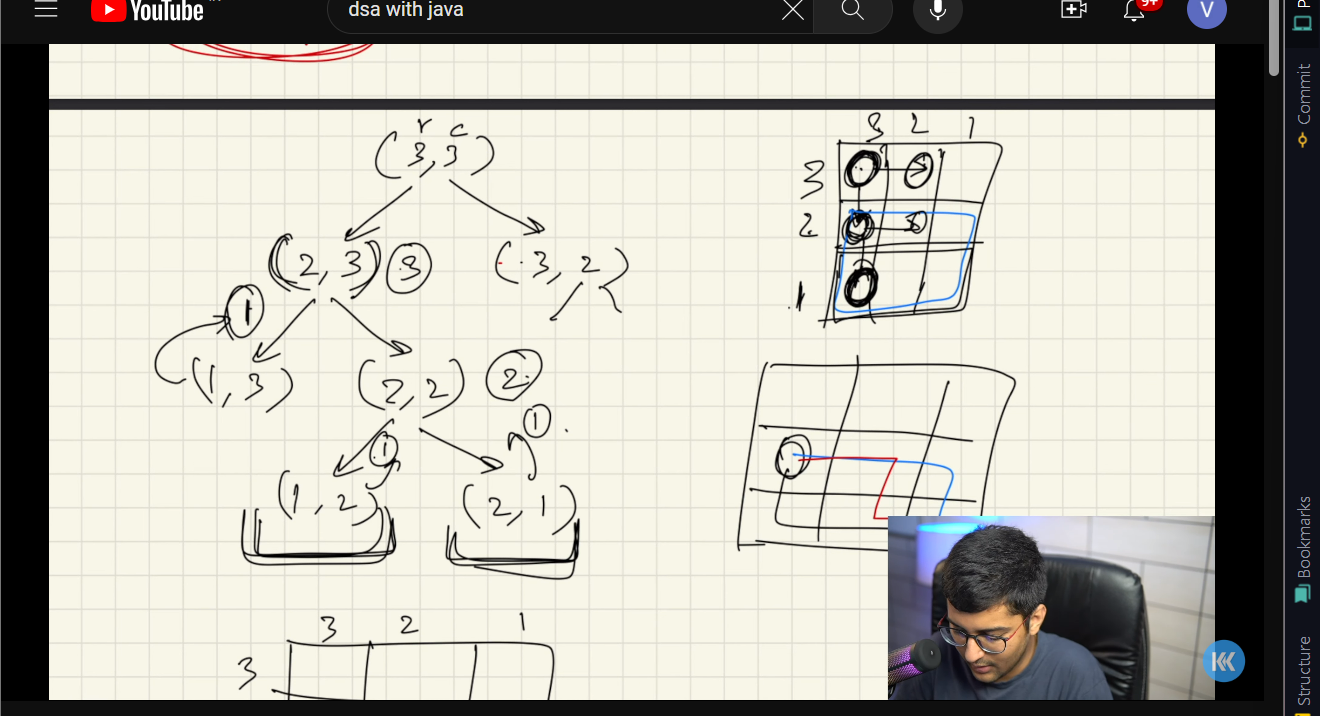 YouTube
dsa with java
9+
V
r c
(3,3)
(2,3) 3
(3,2)
1
(1,3)
(2,2) 2
1
1
(1,2)
(2,1)
3 2 1
3
2
1
3 2 1
3
Commit
Bookmarks
Structure